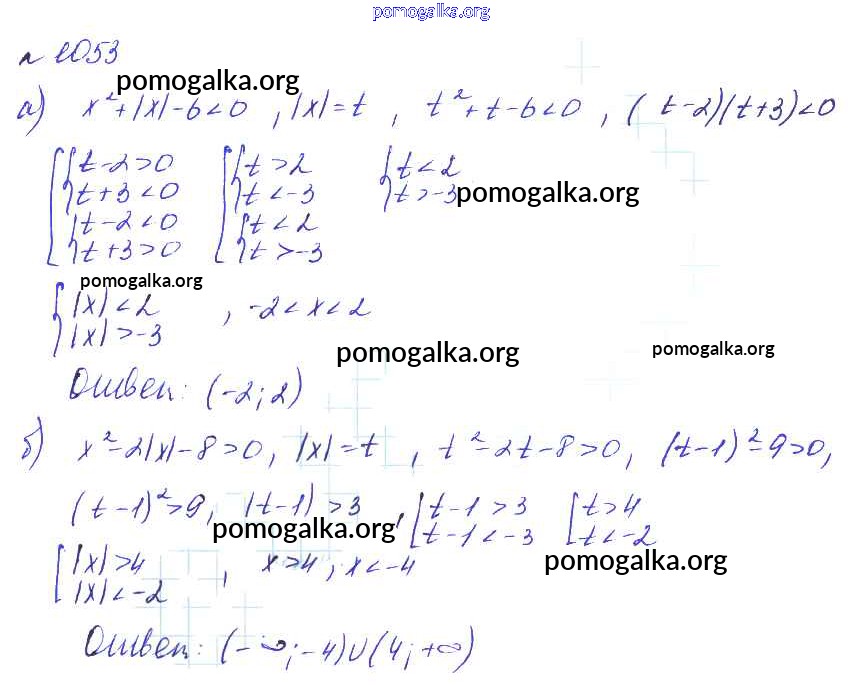 pomogalka.org
№ 1053
pomogalka.org
а) x²+|x|-6<0, |x|=t, t²+t-6<0, (t-2)(t+3)<0
[ { t-2>0 [ { t>2 { t<2
{ t+3<0 { t<-3 { t>-3 pomogalka.org
{ t-2<0 { t<2
{ t+3>0 { t>-3
pomogalka.org
{ |x|<2 , -2<x<2
{ |x|>-3
pomogalka.org pomogalka.org
Ответ: (-2;2)
б) x²-2|x|-8>0, |x|=t, t²-2t-8>0, (t-1)²-9>0,
(t-1)²>9, |t-1|>3, [ t-1>3 [ t>4
pomogalka.org [ t-1<-3 [ t<-2
[ |x|>4 , x>4, x<-4 pomogalka.org
[ |x|<-2
Ответ: (-∞;-4)∪(4;+∞)